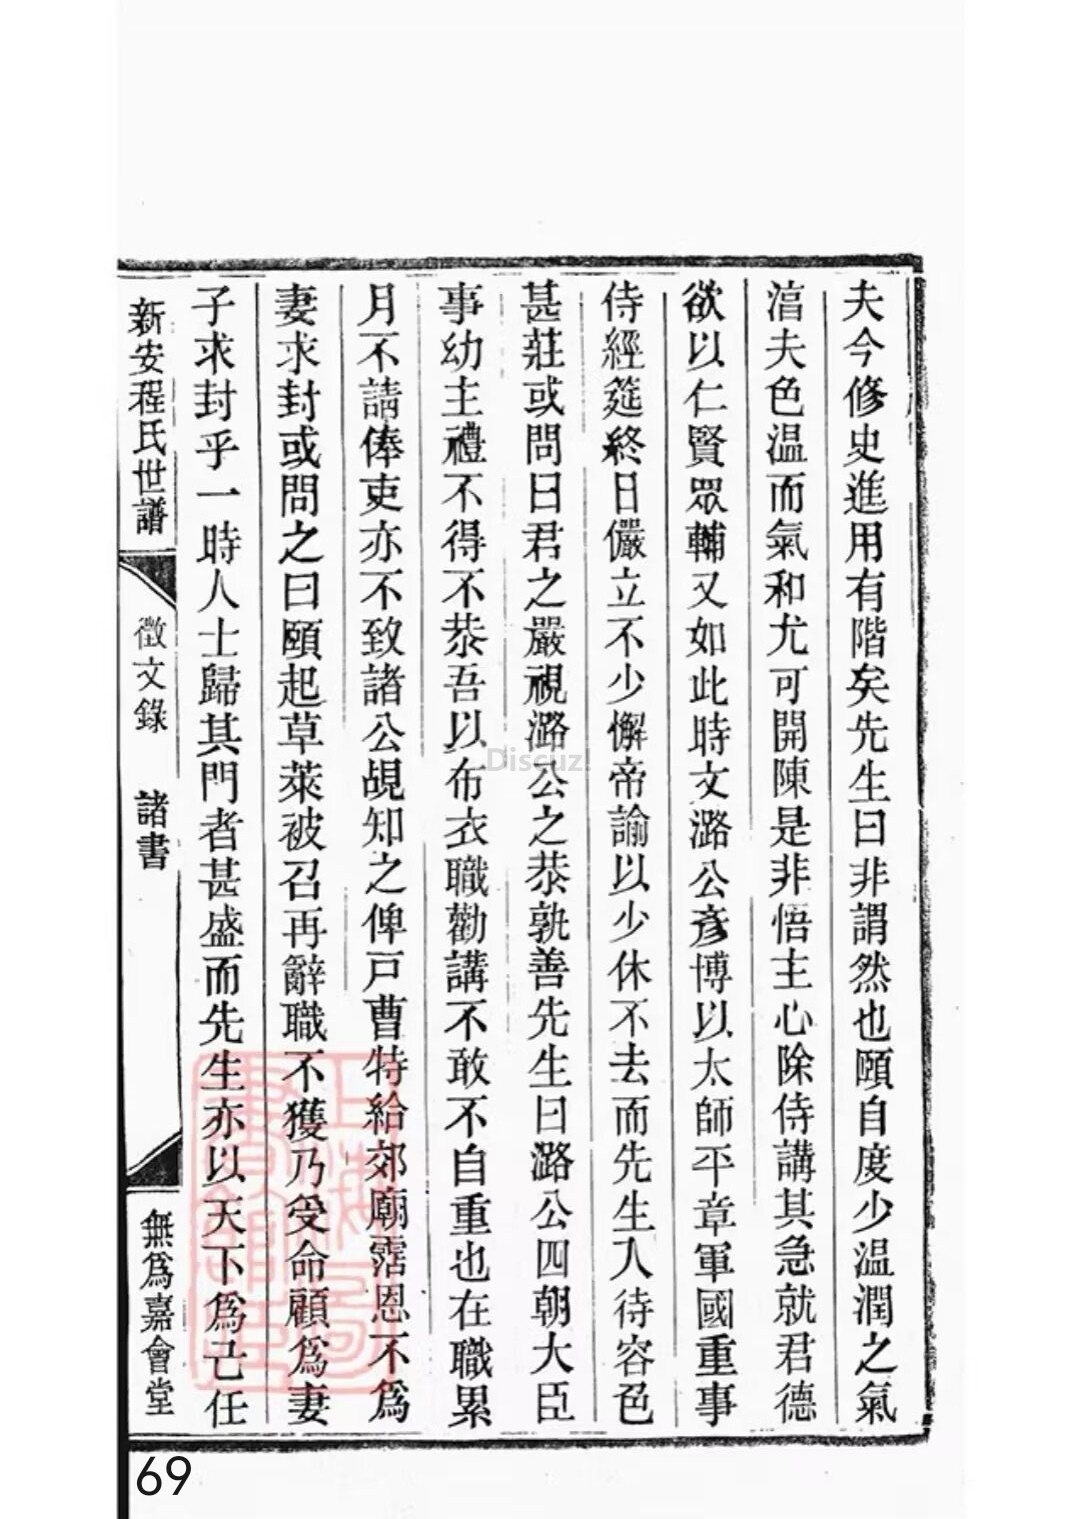 夫今修史進用有階矣先生曰非謂然也頤自度少温潤之氣
淳夫色温而氣和尤可開陳是非悟主心除侍講其急就君德
欲以仁賢眾輔又如此時文潞公彥博以太師平章軍國重事
侍經筵終日儼立不少懈帝諭以少休不去而先生入待容色
甚莊或問曰君之嚴視潞公之恭孰善先生曰潞公四朝大臣
事幼主禮不得不恭吾以布衣職勸講不敢不自重也在職累
月不請俸吏亦不致諸公覘知之俾戸曹特給郊廟霑恩不爲
妻求封或問之曰頤起草萊被召再辭職不獲乃受命顧爲妻
子求封乎一時人士歸其門者甚盛而先生亦以天下爲己任
新安程氏世譜 徵文錄 諸書 無爲嘉會堂
Discuz!
69